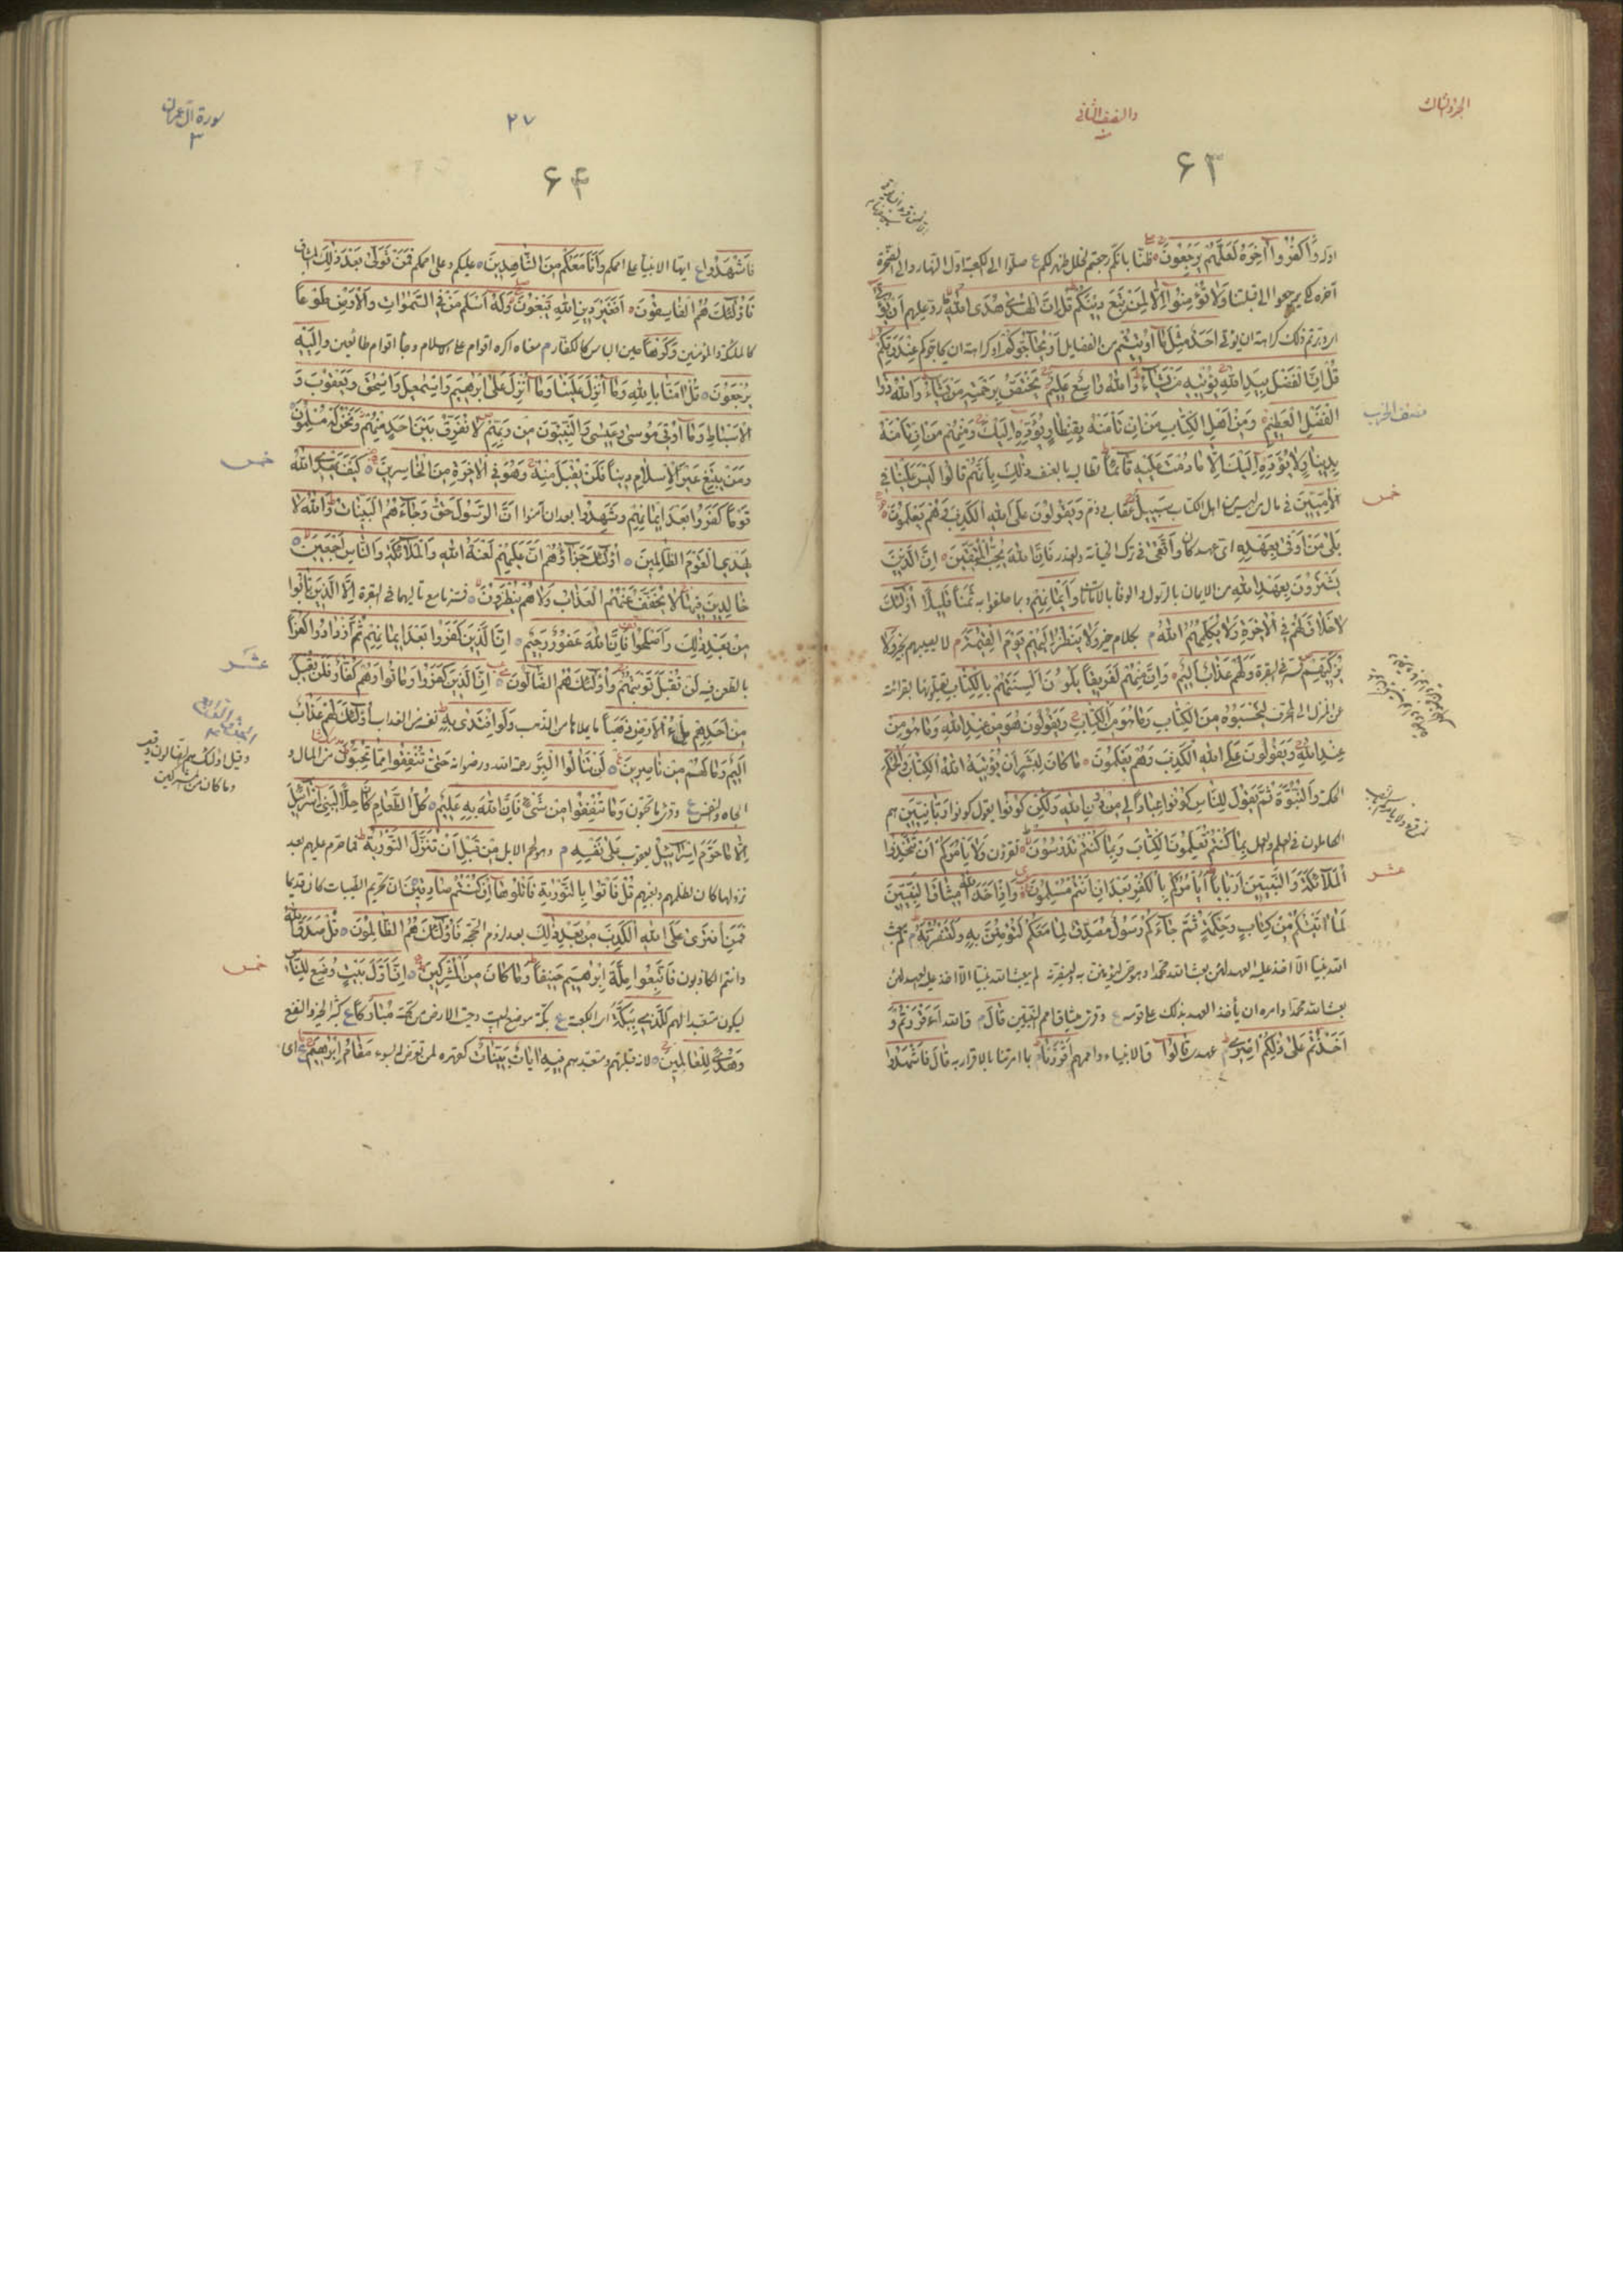 الجزء الثالث
والنصف الثانی
۶۳
وَاكْفُرُوا اٰخِرَهُ لَعَلَّهُمْ يَرْجِعُونَ ظنّا بانكم رجعتم لخلل ظهر لكم ع صلّوا الى الكعبة اوّل النهار والى الصخرة
آخره لعلهم يرجعوا الى قبلتنا وَلَا تُؤْمِنُوا اِلَّا لِمَنْ تَبِعَ دِينَكُمْ قُلْ اِنَّ الْهُدٰى هُدَى اللهِ ردّ عليهم اَنْ يُؤْتٰى
دبرتم ذلك كراهة ان يؤتى اَحَدٌ مِثْلَ مَا اُوتِيتُمْ من الفضايل اَوْ يُحَاجُّوكُمْ او كراهة ان يحاجوكم عِنْدَ رَبِّكُمْ
قُلْ اِنَّ الْفَضْلَ بِيَدِ اللهِ يُؤْتِيهِ مَنْ يَشَاءُ وَاللهُ وَاسِعٌ عَلِيمٌ يَخْتَصُّ بِرَحْمَتِهِ مَنْ يَشَاءُ وَاللهُ ذُو
الْفَضْلِ الْعَظِيمِ وَمِنْ اَهْلِ الْكِتَابِ مَنْ اِنْ تَأْمَنْهُ بِقِنْطَارٍ يُؤَدِّهِ اِلَيْكَ وَمِنْهُمْ مَنْ اِنْ تَأْمَنْهُ
نصف الحزب
بِدِينَارٍ لَا يُؤَدِّهِ اِلَيْكَ اِلَّا مَا دُمْتَ عَلَيْهِ قَائِمًا تطالبه بالعنف ذٰلِكَ بِاَنَّهُمْ قَالُوا لَيْسَ عَلَيْنَا فِي
الْاُمِّيِّينَ فى مال من ليس من اهل الكتاب سَبِيلٌ عقاب وذم وَيَقُولُونَ عَلَى اللهِ الْكَذِبَ وَهُمْ يَعْلَمُونَ
خمس
بَلٰى مَنْ اَوْفٰى بِعَهْدِهِ اىّ عهد كان وَاتَّقٰى فى ترك الخيانة والغدر فَاِنَّ اللهَ يُحِبُّ الْمُتَّقِينَ اِنَّ الَّذِينَ
يَشْتَرُونَ بِعَهْدِ اللهِ من الايمان بالرسول والوفا بالامانات وَاَيْمَانِهِمْ وبما حلفوا به ثَمَنًا قَلِيلًا اُولٰئِكَ
لَا خَلَاقَ لَهُمْ فِي الْاٰخِرَةِ وَلَا يُكَلِّمُهُمُ اللهُ م بكلام خير وَلَا يَنْظُرُ اِلَيْهِمْ يَوْمَ الْقِيٰمَةِ م لا يصيبهم بخير وَلَا
يُزَكِّيهِمْ فسر فى البقرة وَلَهُمْ عَذَابٌ اَلِيمٌ وَاِنَّ مِنْهُمْ لَفَرِيقًا يَلْوُونَ اَلْسِنَتَهُمْ بِالْكِتَابِ يفتلونها بقرائته
عن المنزل الى المحرف لِتَحْسَبُوهُ مِنَ الْكِتَابِ وَمَا هُوَ مِنَ الْكِتَابِ وَيَقُولُونَ هُوَ مِنْ عِنْدِ اللهِ وَمَا هُوَ مِنْ
عِنْدِ اللهِ وَيَقُولُونَ عَلَى اللهِ الْكَذِبَ وَهُمْ يَعْلَمُونَ مَا كَانَ لِبَشَرٍ اَنْ يُؤْتِيَهُ اللهُ الْكِتَابَ وَالْحُكْمَ
الحكمة وَالنُّبُوَّةَ ثُمَّ يَقُولَ لِلنَّاسِ كُونُوا عِبَادًا لِي مِنْ دُونِ اللهِ وَلٰكِنْ كُونُوا يقول كونوا رَبَّانِيِّينَ هم
الكاملون فى العلم والعمل بِمَا كُنْتُمْ تُعَلِّمُونَ الْكِتَابَ وَبِمَا كُنْتُمْ تَدْرُسُونَ تقرؤن وَلَا يَأْمُرَكُمْ اَنْ تَتَّخِذُوا
الْمَلَائِكَةَ وَالنَّبِيِّينَ اَرْبَابًا اَيَأْمُرُكُمْ بِالْكُفْرِ بَعْدَ اِذْ اَنْتُمْ مُسْلِمُونَ وَاِذْ اَخَذَ اللهُ مِيثَاقَ النَّبِيِّينَ
عشر
لَمَا اٰتَيْتُكُمْ مِنْ كِتَابٍ وَحِكْمَةٍ ثُمَّ جَاءَكُمْ رَسُولٌ مُصَدِّقٌ لِمَا مَعَكُمْ لَتُؤْمِنُنَّ بِهِ وَلَتَنْصُرُنَّهُ م لم يبعث
الله نبيّا الّا اخذ عليه العهد لئن بعث الله محمّدا وهو حىّ ليؤمننّ به ولينصرنّه لم يبعث الله نبيّا الّا اخذ عليه العهد لئن
بعث الله محمّدا وامره ان يأخذ العهد بذلك على قومه ع وقرئ ميثاق امم النبيّين قَالَ م قال الله ءَاَقْرَرْتُمْ وَ
اَخَذْتُمْ عَلٰى ذٰلِكُمْ اِصْرِي م عهدى قَالُوا قال الانبياء واممهم اَقْرَرْنَا م بما امرتنا بالاقرار به قَالَ فَاشْهَدُوا
سورة آل عمران
۳
۲۷
۶۴
فَاشْهَدُوا ع ايّها الانبياء على اممكم وَاَنَا مَعَكُمْ مِنَ الشَّاهِدِينَ عليكم وعلى اممكم فَمَنْ تَوَلّٰى بَعْدَ ذٰلِكَ الميثاق
فَاُولٰئِكَ هُمُ الْفَاسِقُونَ اَفَغَيْرَ دِينِ اللهِ يَبْغُونَ وَلَهُ اَسْلَمَ مَنْ فِي السَّمٰوَاتِ وَالْاَرْضِ طَوْعًا
كالملئكة والمؤمنين وَكَرْهًا حين الباس كالكفار م معناه اكره اقوام على الاسلام وجاء اقوام طائعين وَاِلَيْهِ
يُرْجَعُونَ قُلْ اٰمَنَّا بِاللهِ وَمَا اُنْزِلَ عَلَيْنَا وَمَا اُنْزِلَ عَلٰى اِبْرٰهِيمَ وَاِسْمٰعِيلَ وَاِسْحٰقَ وَيَعْقُوبَ وَ
الْاَسْبَاطِ وَمَا اُوتِيَ مُوسٰى وَعِيسٰى وَالنَّبِيُّونَ مِنْ رَبِّهِمْ لَا نُفَرِّقُ بَيْنَ اَحَدٍ مِنْهُمْ وَنَحْنُ لَهُ مُسْلِمُونَ
وَمَنْ يَبْتَغِ غَيْرَ الْاِسْلَامِ دِينًا فَلَنْ يُقْبَلَ مِنْهُ وَهُوَ فِي الْاٰخِرَةِ مِنَ الْخَاسِرِينَ كَيْفَ يَهْدِي اللهُ
خمس
قَوْمًا كَفَرُوا بَعْدَ اِيمَانِهِمْ وَشَهِدُوا بعد ان آمنوا اَنَّ الرَّسُولَ حَقٌّ وَجَاءَهُمُ الْبَيِّنَاتُ وَاللهُ لَا
يَهْدِي الْقَوْمَ الظَّالِمِينَ اُولٰئِكَ جَزَاؤُهُمْ اَنَّ عَلَيْهِمْ لَعْنَةَ اللهِ وَالْمَلَائِكَةِ وَالنَّاسِ اَجْمَعِينَ
خَالِدِينَ فِيهَا لَا يُخَفَّفُ عَنْهُمُ الْعَذَابُ وَلَا هُمْ يُنْظَرُونَ فسّر مع تاليها فى البقرة اِلَّا الَّذِينَ تَابُوا
مِنْ بَعْدِ ذٰلِكَ وَاَصْلَحُوا فَاِنَّ اللهَ غَفُورٌ رَحِيمٌ اِنَّ الَّذِينَ كَفَرُوا بَعْدَ اِيمَانِهِمْ ثُمَّ ازْدَادُوا كُفْرًا
عشر
بالطعن فيه لَنْ تُقْبَلَ تَوْبَتُهُمْ وَاُولٰئِكَ هُمُ الضَّالُّونَ اِنَّ الَّذِينَ كَفَرُوا وَمَاتُوا وَهُمْ كُفَّارٌ فَلَنْ يُقْبَلَ
مِنْ اَحَدِهِمْ مِلْءُ الْاَرْضِ ذَهَبًا ما يملاها من الذهب وَلَوِ افْتَدٰى بِهِ نفسه من العذاب اُولٰئِكَ لَهُمْ عَذَابٌ
اَلِيمٌ وَمَا لَهُمْ مِنْ نَاصِرِينَ لَنْ تَنَالُوا الْبِرَّ رحمة الله ورضوانه حَتّٰى تُنْفِقُوا مِمَّا تُحِبُّونَ من المال و
الجاه والنفس ع وقرئ ما تحبّون وَمَا تُنْفِقُوا مِنْ شَيْءٍ فَاِنَّ اللهَ بِهِ عَلِيمٌ كُلُّ الطَّعَامِ كَانَ حِلًّا لِبَنِي اِسْرَائِيلَ
اِلَّا مَا حَرَّمَ اِسْرَائِيلُ يعقوب عَلٰى نَفْسِهِ م وهو لحم الابل مِنْ قَبْلِ اَنْ تُنَزَّلَ التَّوْرٰيةُ فما حرم عليهم بعد
نزولها كان لظلمهم وبغيهم قُلْ فَأْتُوا بِالتَّوْرٰيةِ فَاتْلُوهَا اِنْ كُنْتُمْ صَادِقِينَ ان تحريم الطيبات كان قديما
فَمَنِ افْتَرٰى عَلَى اللهِ الْكَذِبَ مِنْ بَعْدِ ذٰلِكَ بعد لزوم الحجة فَاُولٰئِكَ هُمُ الظَّالِمُونَ قُلْ صَدَقَ اللهُ
وانتم الكاذبون فَاتَّبِعُوا مِلَّةَ اِبْرٰهِيمَ حَنِيفًا وَمَا كَانَ مِنَ الْمُشْرِكِينَ اِنَّ اَوَّلَ بَيْتٍ وُضِعَ لِلنَّاسِ
خمس
ليكون متعبدا لهم لَلَّذِي بِبَكَّةَ اى الكعبة ع بكة موضع البيت دحيت الارض من تحته مُبَارَكًا ع كثير الخير والنفع
وَهُدًى لِلْعَالَمِينَ لانه قبلتهم ومتعبدهم فِيهِ اٰيَاتٌ بَيِّنَاتٌ كقهره لمن تعرض له بسوء مَقَامُ اِبْرٰهِيمَ اى
وقيل اولئك هم الضالون
وما كان من المشركين